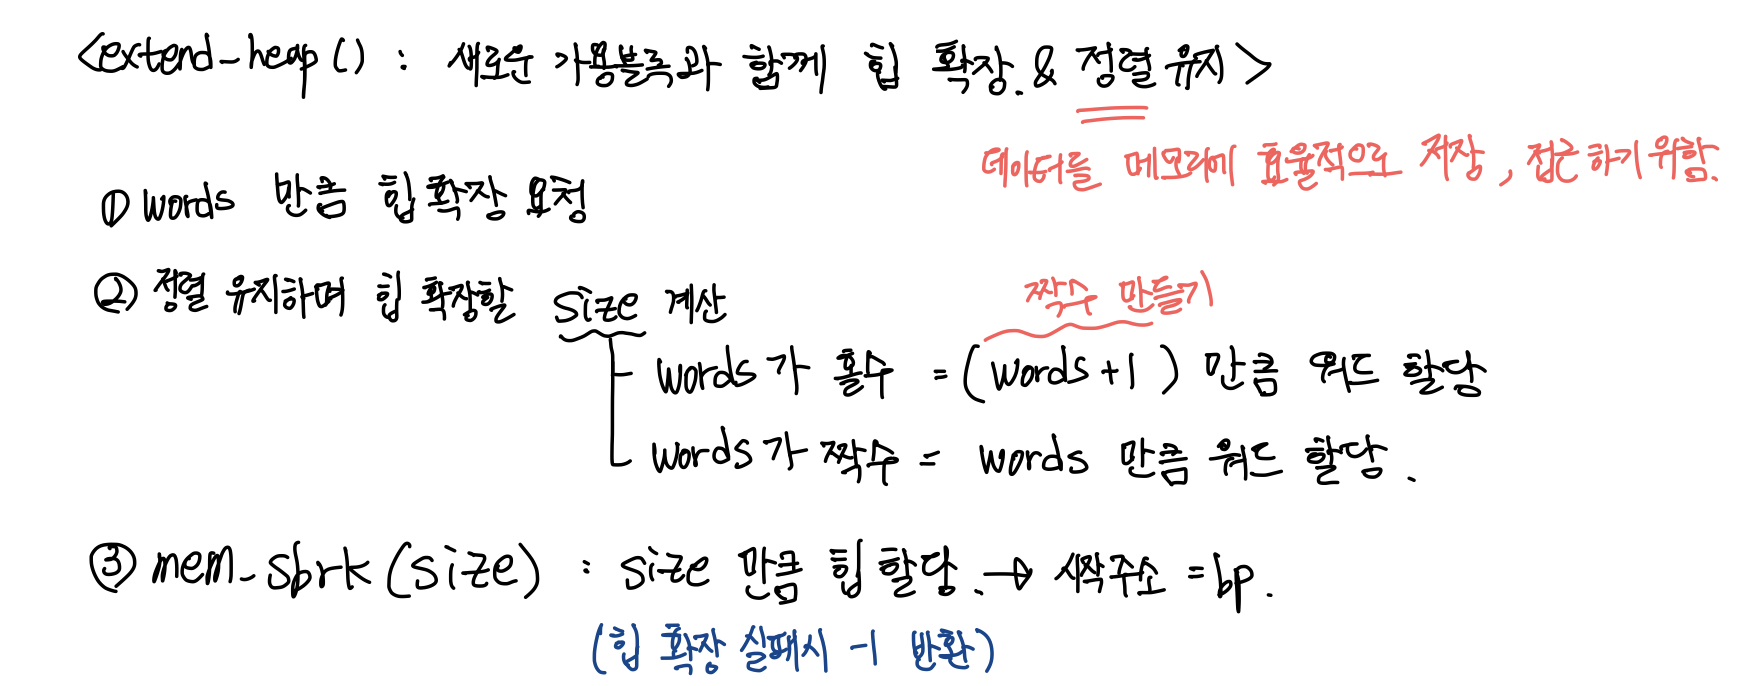 <extend-heap() : 새로운 가용블록과 함께 힙 확장. & 정렬 유지>
데이터를 메모리에 효율적으로 저장, 접근하기 위함.
① words 만큼 힙 확장 요청
② 정렬 유지하며 힙 확장할 size 계산
짝수 만들기
words가 홀수 = (words+1) 만큼 워드 할당
words가 짝수 = words 만큼 워드 할당.
③ mem_sbrk(size) : size 만큼 힙 할당. → 시작주소 = bp.
(힙 확장 실패시 -1 반환)